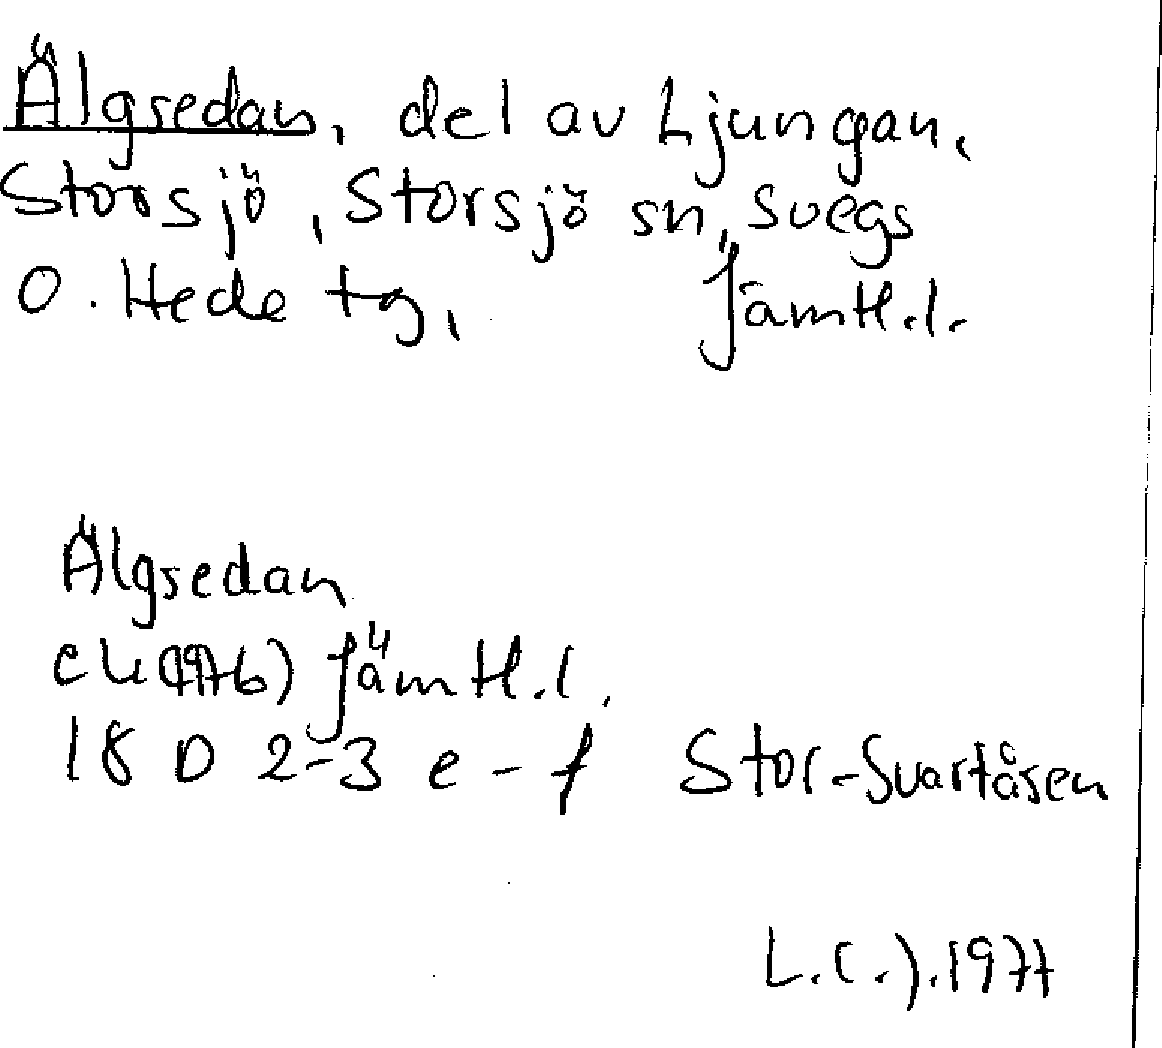 Älgsedan, del av Ljungan,
Storsjö, Storsjö sn, Svegs
o. Hede tg, Jämtl.l.
Älgsedan
ek (1976) Jämtl.l.
18 D 2-3 e-f Stor-Svartåsen
L.C.J.1977